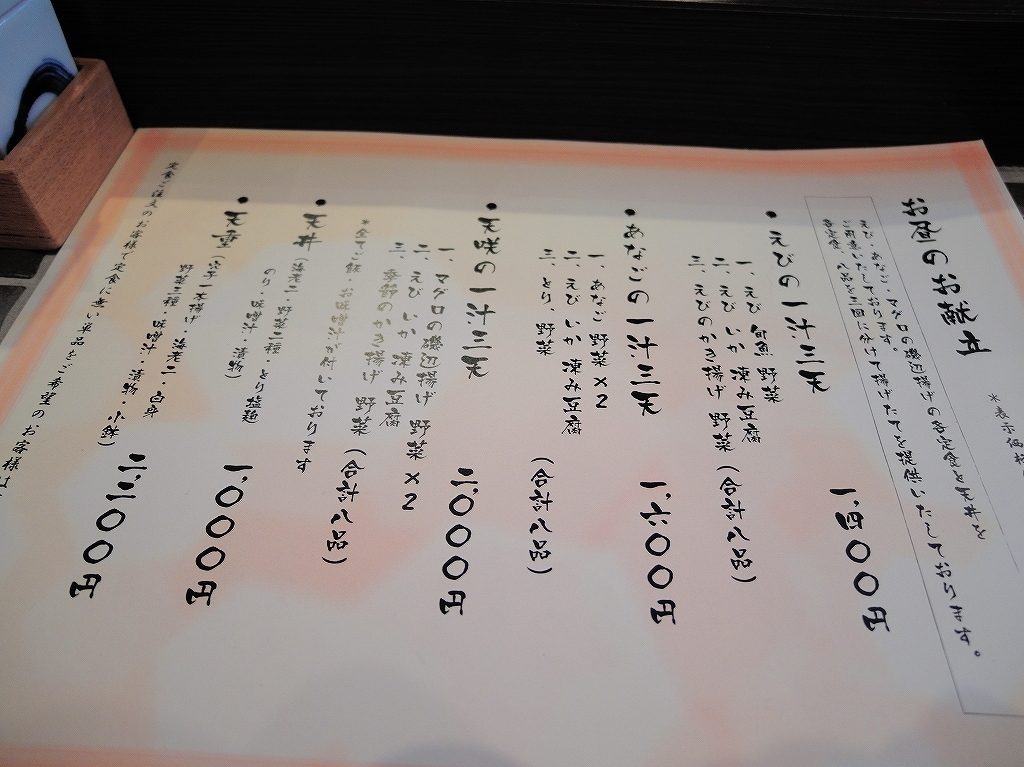 お昼のお献立
＊表示価格
えび、あなご、マグロの磯辺揚げの各定食と天丼を
ご用意いたしております。
各定食、八品を三回に分けて揚げたてを提供いたしております。
・えびの一汁三天 一、四〇〇円
一、えび 旬魚 野菜
二、えび いか 凍み豆腐
三、えびのかき揚げ 野菜（合計八品）
・あなごの一汁三天 一、六〇〇円
一、あなご 野菜×2
二、えび いか 凍み豆腐
三、とり、野菜 （合計八品）
・天咲の一汁三天 二、〇〇〇円
一、マグロの磯辺揚げ 野菜×2
二、えび いか 凍み豆腐
三、季節のかき揚げ 野菜（合計八品）
＊全てご飯・お味噌汁が付いております
・天丼（海老二・野菜三種・とり塩麹
のり・味噌汁・漬物） 一、〇〇〇円
・天重（穴子一本揚げ・海老二・白身
野菜三種・味噌汁・漬物・小鉢） 二、二〇〇円
定食ご注文のお客様で定食に無い単品をご希望のお客様は